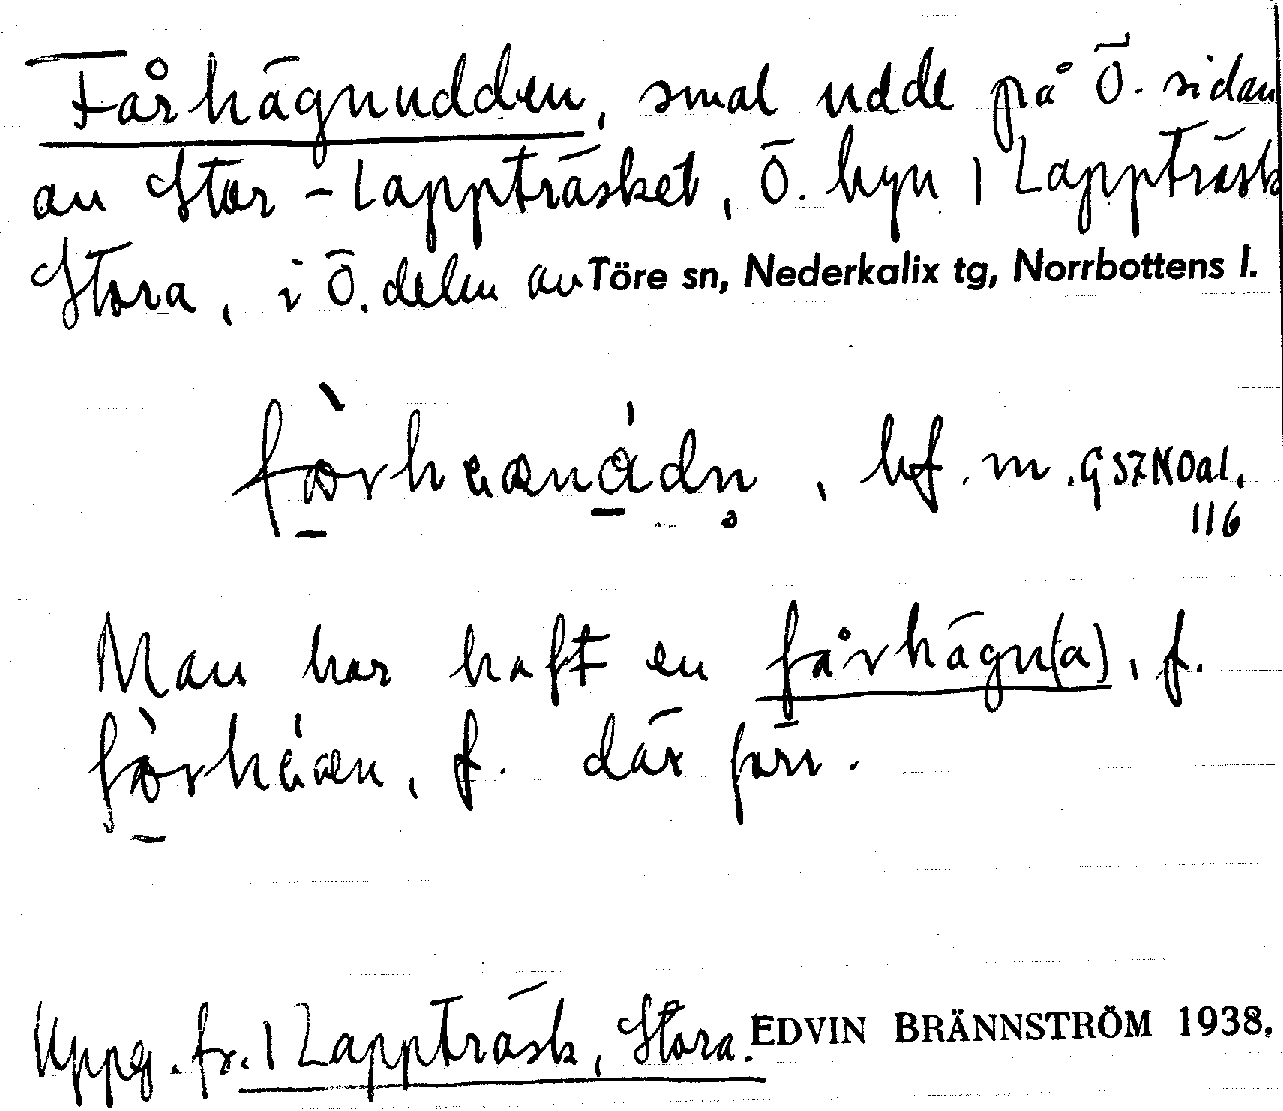 Fårhägnudden, smal udde på Ö. sidan
av Stor-Lappträsket, Ö. byn 1 Lappträsk
Stora, i Ö. delen av Töre sn, Nederkalix tg, Norrbottens l.
bf. m.
116
Man har haft en fårhägn(a), f.
f. där förr.
Uppg. fr. 1 Lappträsk, Stora. EDVIN BRÄNNSTRÖM 1938.